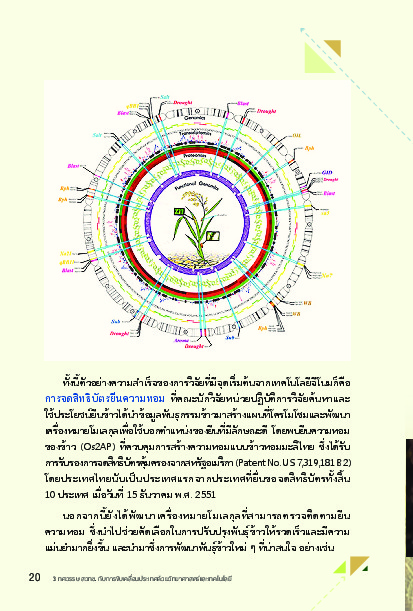 Salt
Drought
Blast
Blast
Drought
Genomics
Transcriptomics
Proteomics
Functional Genomics
Salt
Blast
Bph
Bph
Blast
Sub
Aroma
Drought
Sub
Bph
WB
WB
Bph
GID
Drought
Blast
ทั้งนี้ตัวอย่างความสำเร็จของการวิจัยที่มีจุดเริ่มต้นจากเทคโนโลยีจีโนมก็คือ
การจดสิทธิบัตรยีนความหอม ที่คณะนักวิจัยหน่วยปฏิบัติการวิจัยค้นหาและ
ใช้ประโยชน์ยีนข้าวได้นำข้อมูลพันธุกรรมข้าวมาสร้างแผนที่โครโมโซมและพัฒนา
เครื่องหมายโมเลกุลเพื่อใช้บอกตำแหน่งของยีนที่มีลักษณะดี โดยพบยีนความหอม
ของข้าว (Os2AP) ที่ควบคุมการสร้างความหอมแบบข้าวหอมมะลิไทย ซึ่งได้รับ
การรับรองการจดสิทธิบัตรคุ้มครองจากสหรัฐอเมริกา (Patent No. US 7,319,181 B2)
โดยประเทศไทยนับเป็นประเทศแรกจากประเทศที่ยื่นขอจดสิทธิบัตรทั้งสิ้น
10 ประเทศ เมื่อวันที่ 15 ธันวาคม พ.ศ. 2551
นอกจากนี้ยังได้พัฒนาเครื่องหมายโมเลกุลที่สามารถตรวจติดตามยีน
ความหอม ซึ่งนำไปช่วยคัดเลือกในการปรับปรุงพันธุ์ข้าวให้รวดเร็วและมีความ
แม่นยำมากยิ่งขึ้น และนำมาซึ่งการพัฒนาพันธุ์ข้าวใหม่ ๆ ที่น่าสนใจ อย่างเช่น
20 3 ทศวรรษ สวทช. กับการขับเคลื่อนประเทศด้วยวิทยาศาสตร์และเทคโนโลยี